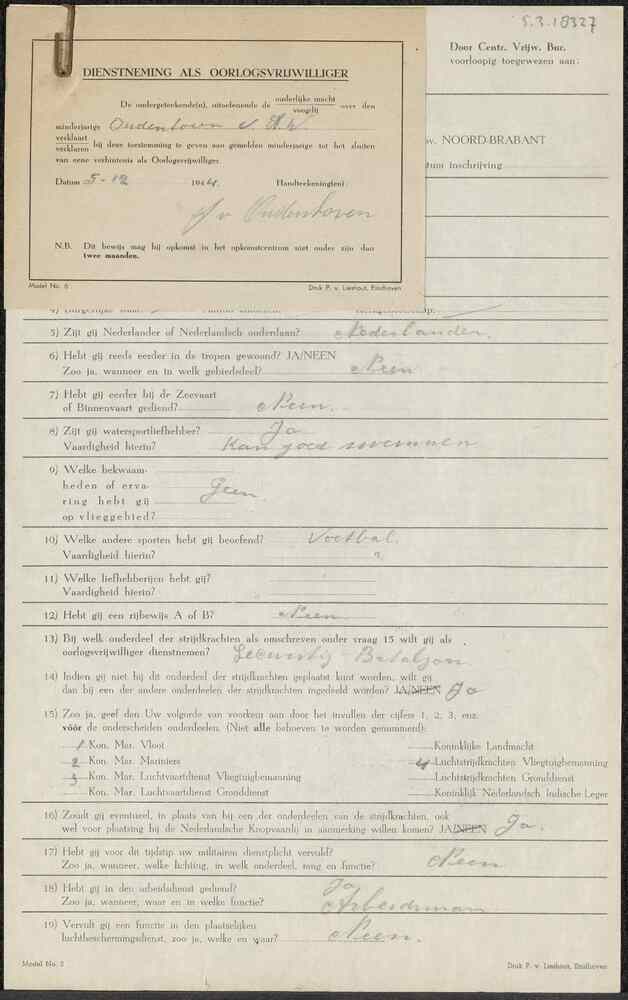 5.3.18327
Door Centr. Vrijw. Bur.
voorloopig toegewezen aan:
DIENSTNEMING ALS OORLOGSVRIJWILLIGER
De ondergeteekende(n), uitoefenende de ouderlijke macht
voogdij over den
minderjarige Oudenhoven v. A.W.
verklaart
verklaren bij deze toestemming te geven aan gemelden minderjarige tot het sluiten
van eene verbintenis als Oorlogsvrijwilliger.
Datum 5-12 1944. Handteekening(en):
v Oudenhoven
N.B. Dit bewijs mag bij opkomst in het opkomstcentrum niet ouder zijn dan
twee maanden.
Model No. 6 Druk P. v. Lieshout, Eindhoven
w. NOORD-BRABANT
tum inschrijving
5) Zijt gij Nederlander of Nederlandsch onderdaan? Nederlander.
6) Hebt gij reeds eerder in de tropen gewoond? JA/NEEN
Zoo ja, wanneer en in welk gebiedsdeel? Neen
7) Hebt gij eerder bij de Zeevaart
of Binnenvaart gediend? Neen.
8) Zijt gij watersportliefhebber? Ja
Vaardigheid hierin? Kan goed swemmen
9) Welke bekwaam-
heden of erva-
ring hebt gij Geen.
op vlieggebied?
10) Welke andere sporten hebt gij beoefend? Voetbal.
Vaardigheid hierin?
11) Welke liefhebberijen hebt gij?
Vaardigheid hierin?
12) Hebt gij een rijbewijs A of B? Neen
13) Bij welk onderdeel der strijdkrachten als omschreven onder vraag 15 wilt gij als
oorlogsvrijwilliger dienstnemen? Bataljon
14) Indien gij niet bij dit onderdeel der strijdkrachten geplaatst kunt worden, wilt gij
dan bij een der andere onderdeelen der strijdkrachten ingedeeld worden? JA/NEEN Ja
15) Zoo ja, geef dan Uw volgorde van voorkeur aan door het invullen der cijfers 1, 2, 3, enz.
vóór de onderscheiden onderdeelen. (Niet alle behoeven te worden genummerd):
1 Kon. Mar. Vloot Koninklijke Landmacht
2 Kon. Mar. Mariniers 4 Luchtstrijdkrachten Vliegtuigbemanning
3 Kon. Mar. Luchtvaartdienst Vliegtuigbemanning Luchtstrijdkrachten Gronddienst
Kon. Mar. Luchtvaartdienst Gronddienst Koninklijk Nederlandsch Indische Leger
16) Zoudt gij eventueel, in plaats van bij een der onderdeelen van de strijdkrachten, ook
wel voor plaatsing bij de Nederlandsche Koopvaardij in aanmerking willen komen? JA/NEEN Ja.
17) Hebt gij vóór dit tijdstip uw militairen dienstplicht vervuld?
Zoo ja, wanneer, welke lichting, in welk onderdeel, rang en functie? Neen
18) Hebt gij in den arbeidsdienst gediend? Ja
Zoo ja, wanneer, waar en in welke functie? Arbeidsman
19) Vervult gij een functie in den plaatselijken
luchtbeschermingsdienst, zoo ja, welke en waar? Neen.
Model No. 5 Druk P. v. Lieshout, Eindhoven